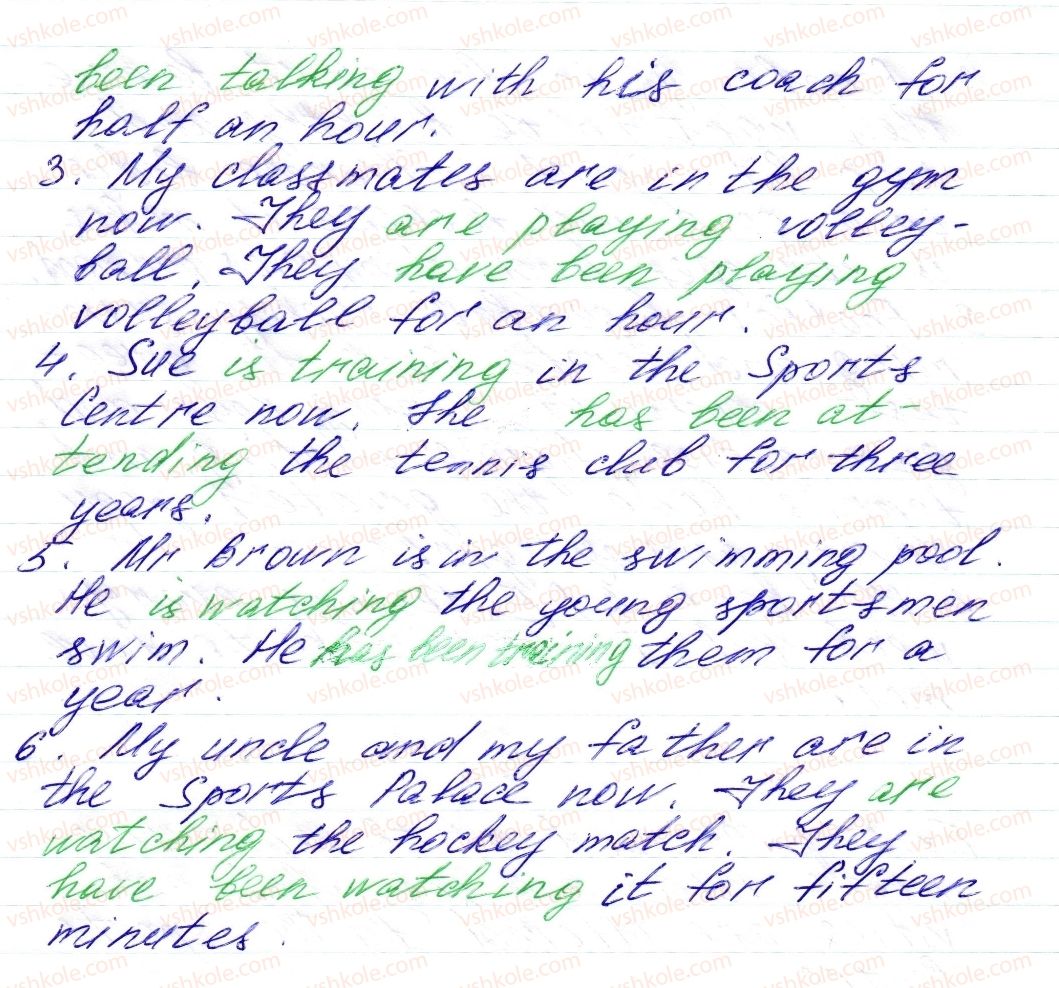 been talking with his coach for
half an hour.
3. My classmates are in the gym
now. They are playing volley-
ball. They have been playing
volleyball for an hour.
4. Sue is training in the Sports
Centre now. She has been at-
tending the tennis club for three
years.
5. Mr Brown is in the swimming pool.
He is watching the young sportsmen
swim. He has been training them for a
year.
6. My uncle and my father are in
the Sports Palace now. They are
watching the hockey match. They
have been watching it for fifteen
minutes.